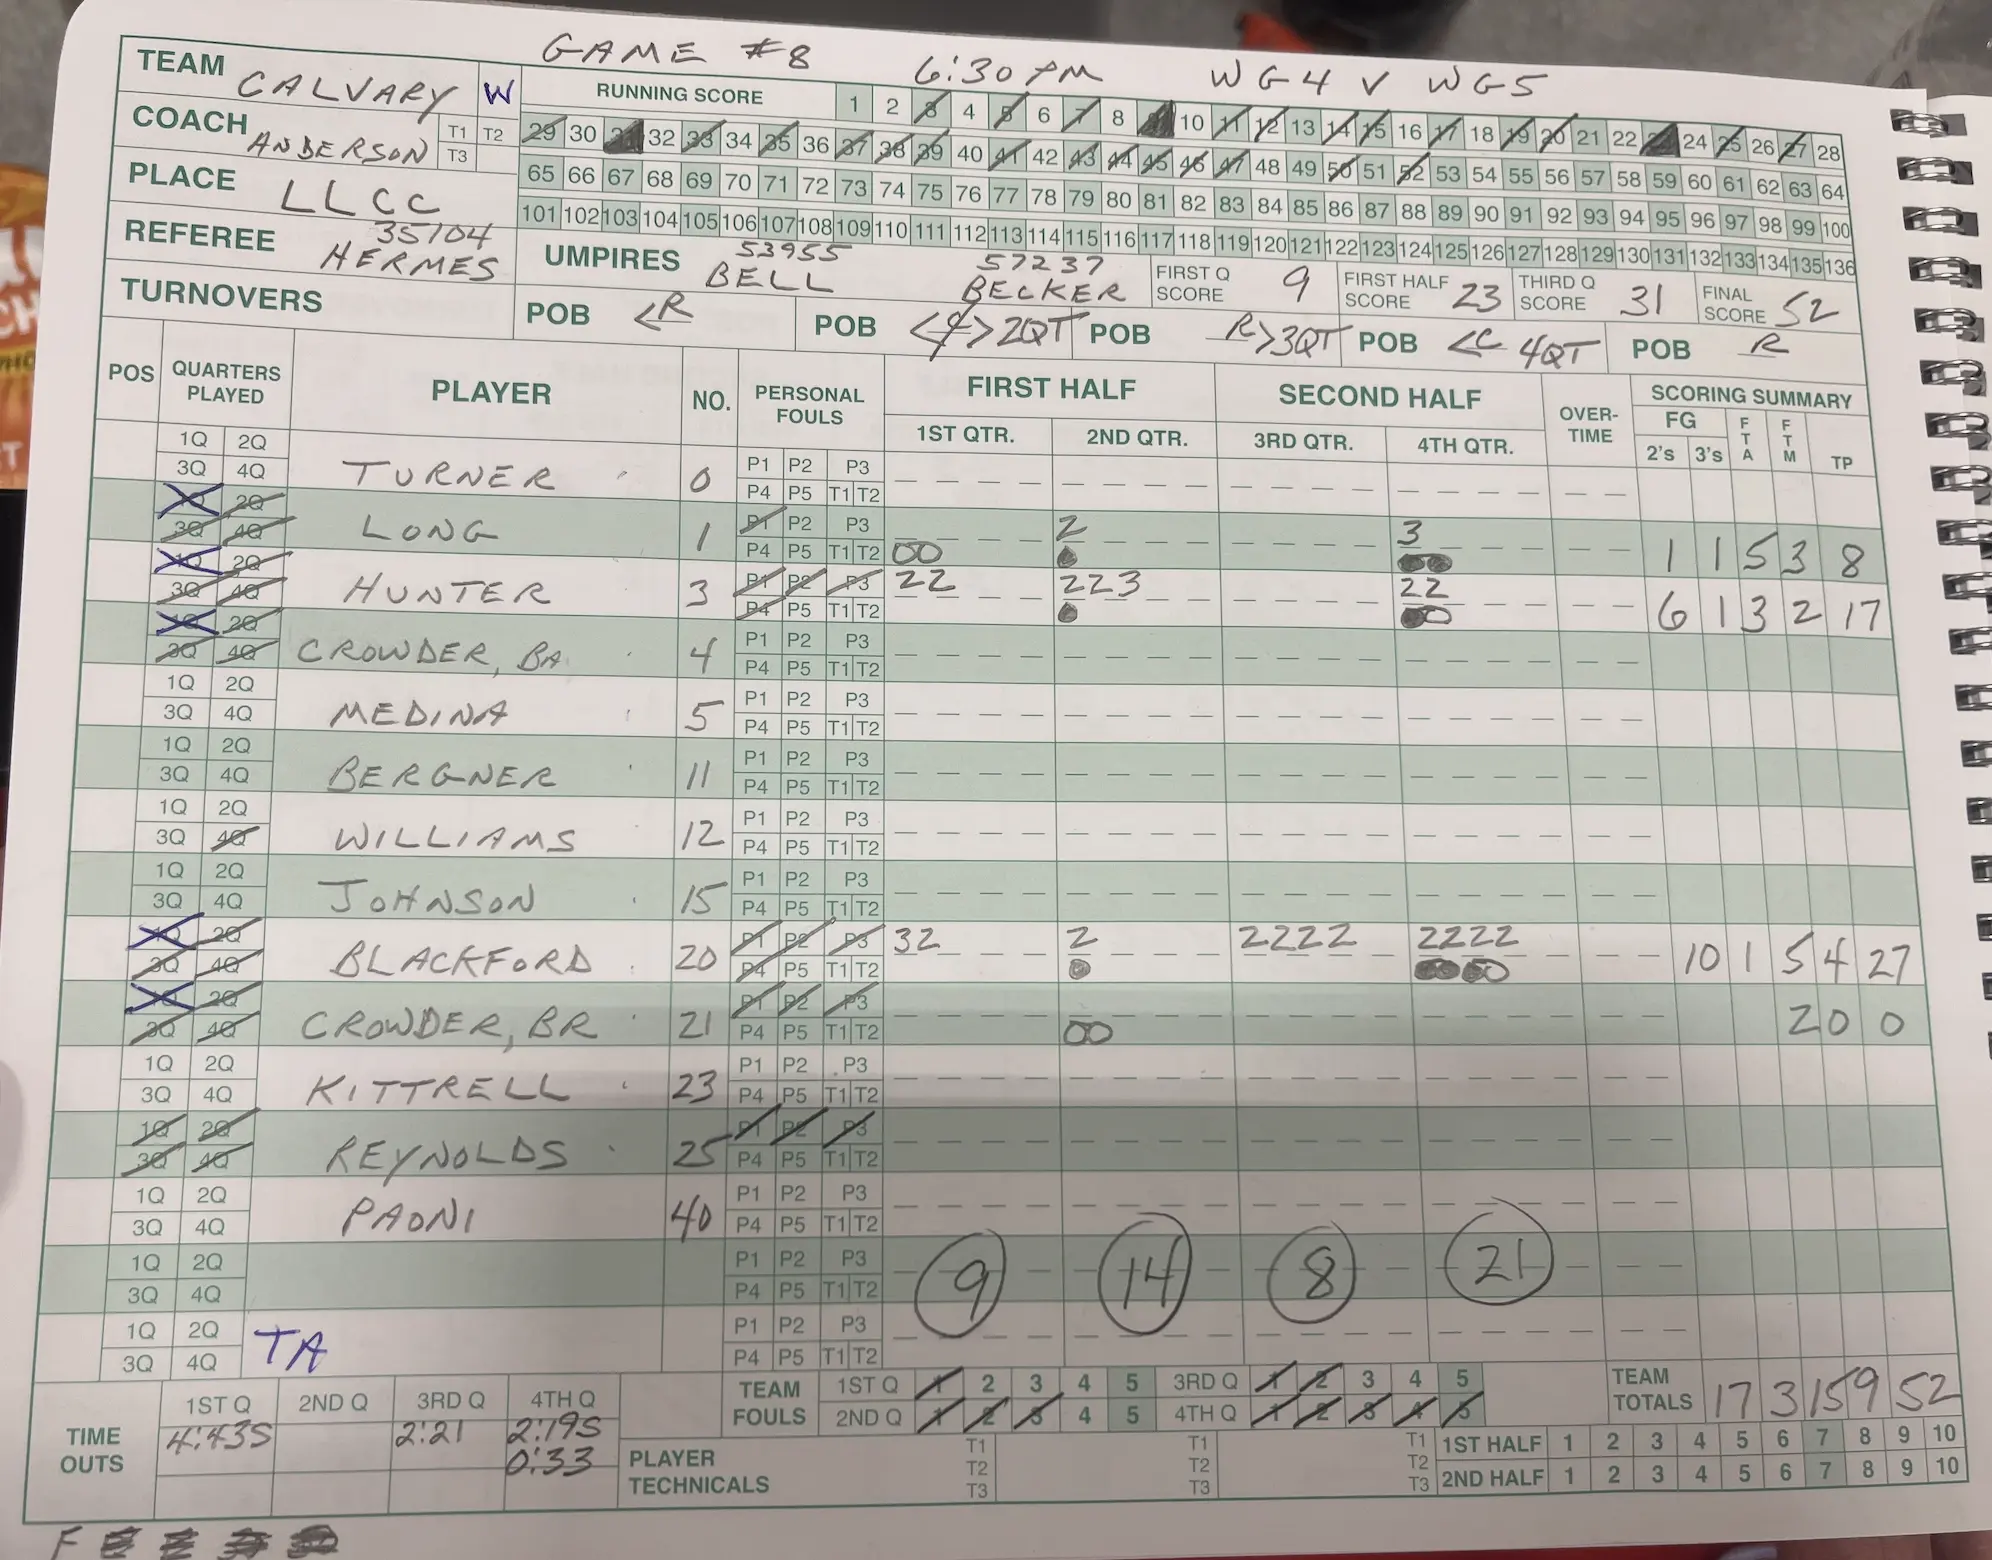 GAME #8 6:30 PM WG4 V WG5
TEAM CALVARY W
RUNNING SCORE 1 2 3 4 5 6 7 8 9 10 11 12 13 14 15 16 17 18 19 20 21 22 23 24 25 26 27 28
COACH ANDERSON T1 T2 T3
29 30 31 32 33 34 35 36 37 38 39 40 41 42 43 44 45 46 47 48 49 50 51 52 53 54 55 56 57 58 59 60 61 62 63 64
PLACE LLCC
65 66 67 68 69 70 71 72 73 74 75 76 77 78 79 80 81 82 83 84 85 86 87 88 89 90 91 92 93 94 95 96 97 98 99 100
101 102 103 104 105 106 107 108 109 110 111 112 113 114 115 116 117 118 119 120 121 122 123 124 125 126 127 128 129 130 131 132 133 134 135 136
REFEREE 35104 HERMES
UMPIRES 53955 BELL 57237 BECKER
FIRST Q SCORE 9 FIRST HALF SCORE 23 THIRD Q SCORE 31 FINAL SCORE 52
TURNOVERS POB <R POB <C> 2QT POB R>3QT POB <C 4QT POB R
POS QUARTERS PLAYED PLAYER NO. PERSONAL FOULS FIRST HALF SECOND HALF OVER-TIME SCORING SUMMARY
1ST QTR. 2ND QTR. 3RD QTR. 4TH QTR. FG 2's 3's FTA FTM TP
1Q 2Q 3Q 4Q TURNER 0 P1 P2 P3 P4 P5 T1 T2
1Q 2Q 3Q 4Q LONG 1 P1 P2 P3 P4 P5 T1 T2 00 2 3 1 1 5 3 8
1Q 2Q 3Q 4Q HUNTER 3 P1 P2 P3 P4 P5 T1 T2 22 223 22 6 1 3 2 17
1Q 2Q 3Q 4Q CROWDER, BA 4 P1 P2 P3 P4 P5 T1 T2
1Q 2Q 3Q 4Q MEDINA 5 P1 P2 P3 P4 P5 T1 T2
1Q 2Q 3Q 4Q BERGNER 11 P1 P2 P3 P4 P5 T1 T2
1Q 2Q 3Q 4Q WILLIAMS 12 P1 P2 P3 P4 P5 T1 T2
1Q 2Q 3Q 4Q JOHNSON 15 P1 P2 P3 P4 P5 T1 T2
1Q 2Q 3Q 4Q BLACKFORD 20 P1 P2 P3 P4 P5 T1 T2 32 2 2222 2222 10 1 5 4 27
1Q 2Q 3Q 4Q CROWDER, BR 21 P1 P2 P3 P4 P5 T1 T2 00 2 0 0
1Q 2Q 3Q 4Q KITTRELL 23 P1 P2 P3 P4 P5 T1 T2
1Q 2Q 3Q 4Q REYNOLDS 25 P1 P2 P3 P4 P5 T1 T2
1Q 2Q 3Q 4Q PAONI 40 P1 P2 P3 P4 P5 T1 T2
1Q 2Q 3Q 4Q P1 P2 P3 P4 P5 T1 T2 9 14 8 21
1Q 2Q 3Q 4Q TA P1 P2 P3 P4 P5 T1 T2
TIME OUTS 1ST Q 4:43S 2ND Q 3RD Q 2:21 4TH Q 2:19S 0:33
TEAM FOULS 1ST Q 1 2 3 4 5 3RD Q 1 2 3 4 5
2ND Q 1 2 3 4 5 4TH Q 1 2 3 4 5
TEAM TOTALS 17 3 15 9 52
PLAYER TECHNICALS T1 T2 T3 T1 T2 T3 T1 T2 T3
1ST HALF 1 2 3 4 5 6 7 8 9 10
2ND HALF 1 2 3 4 5 6 7 8 9 10
F